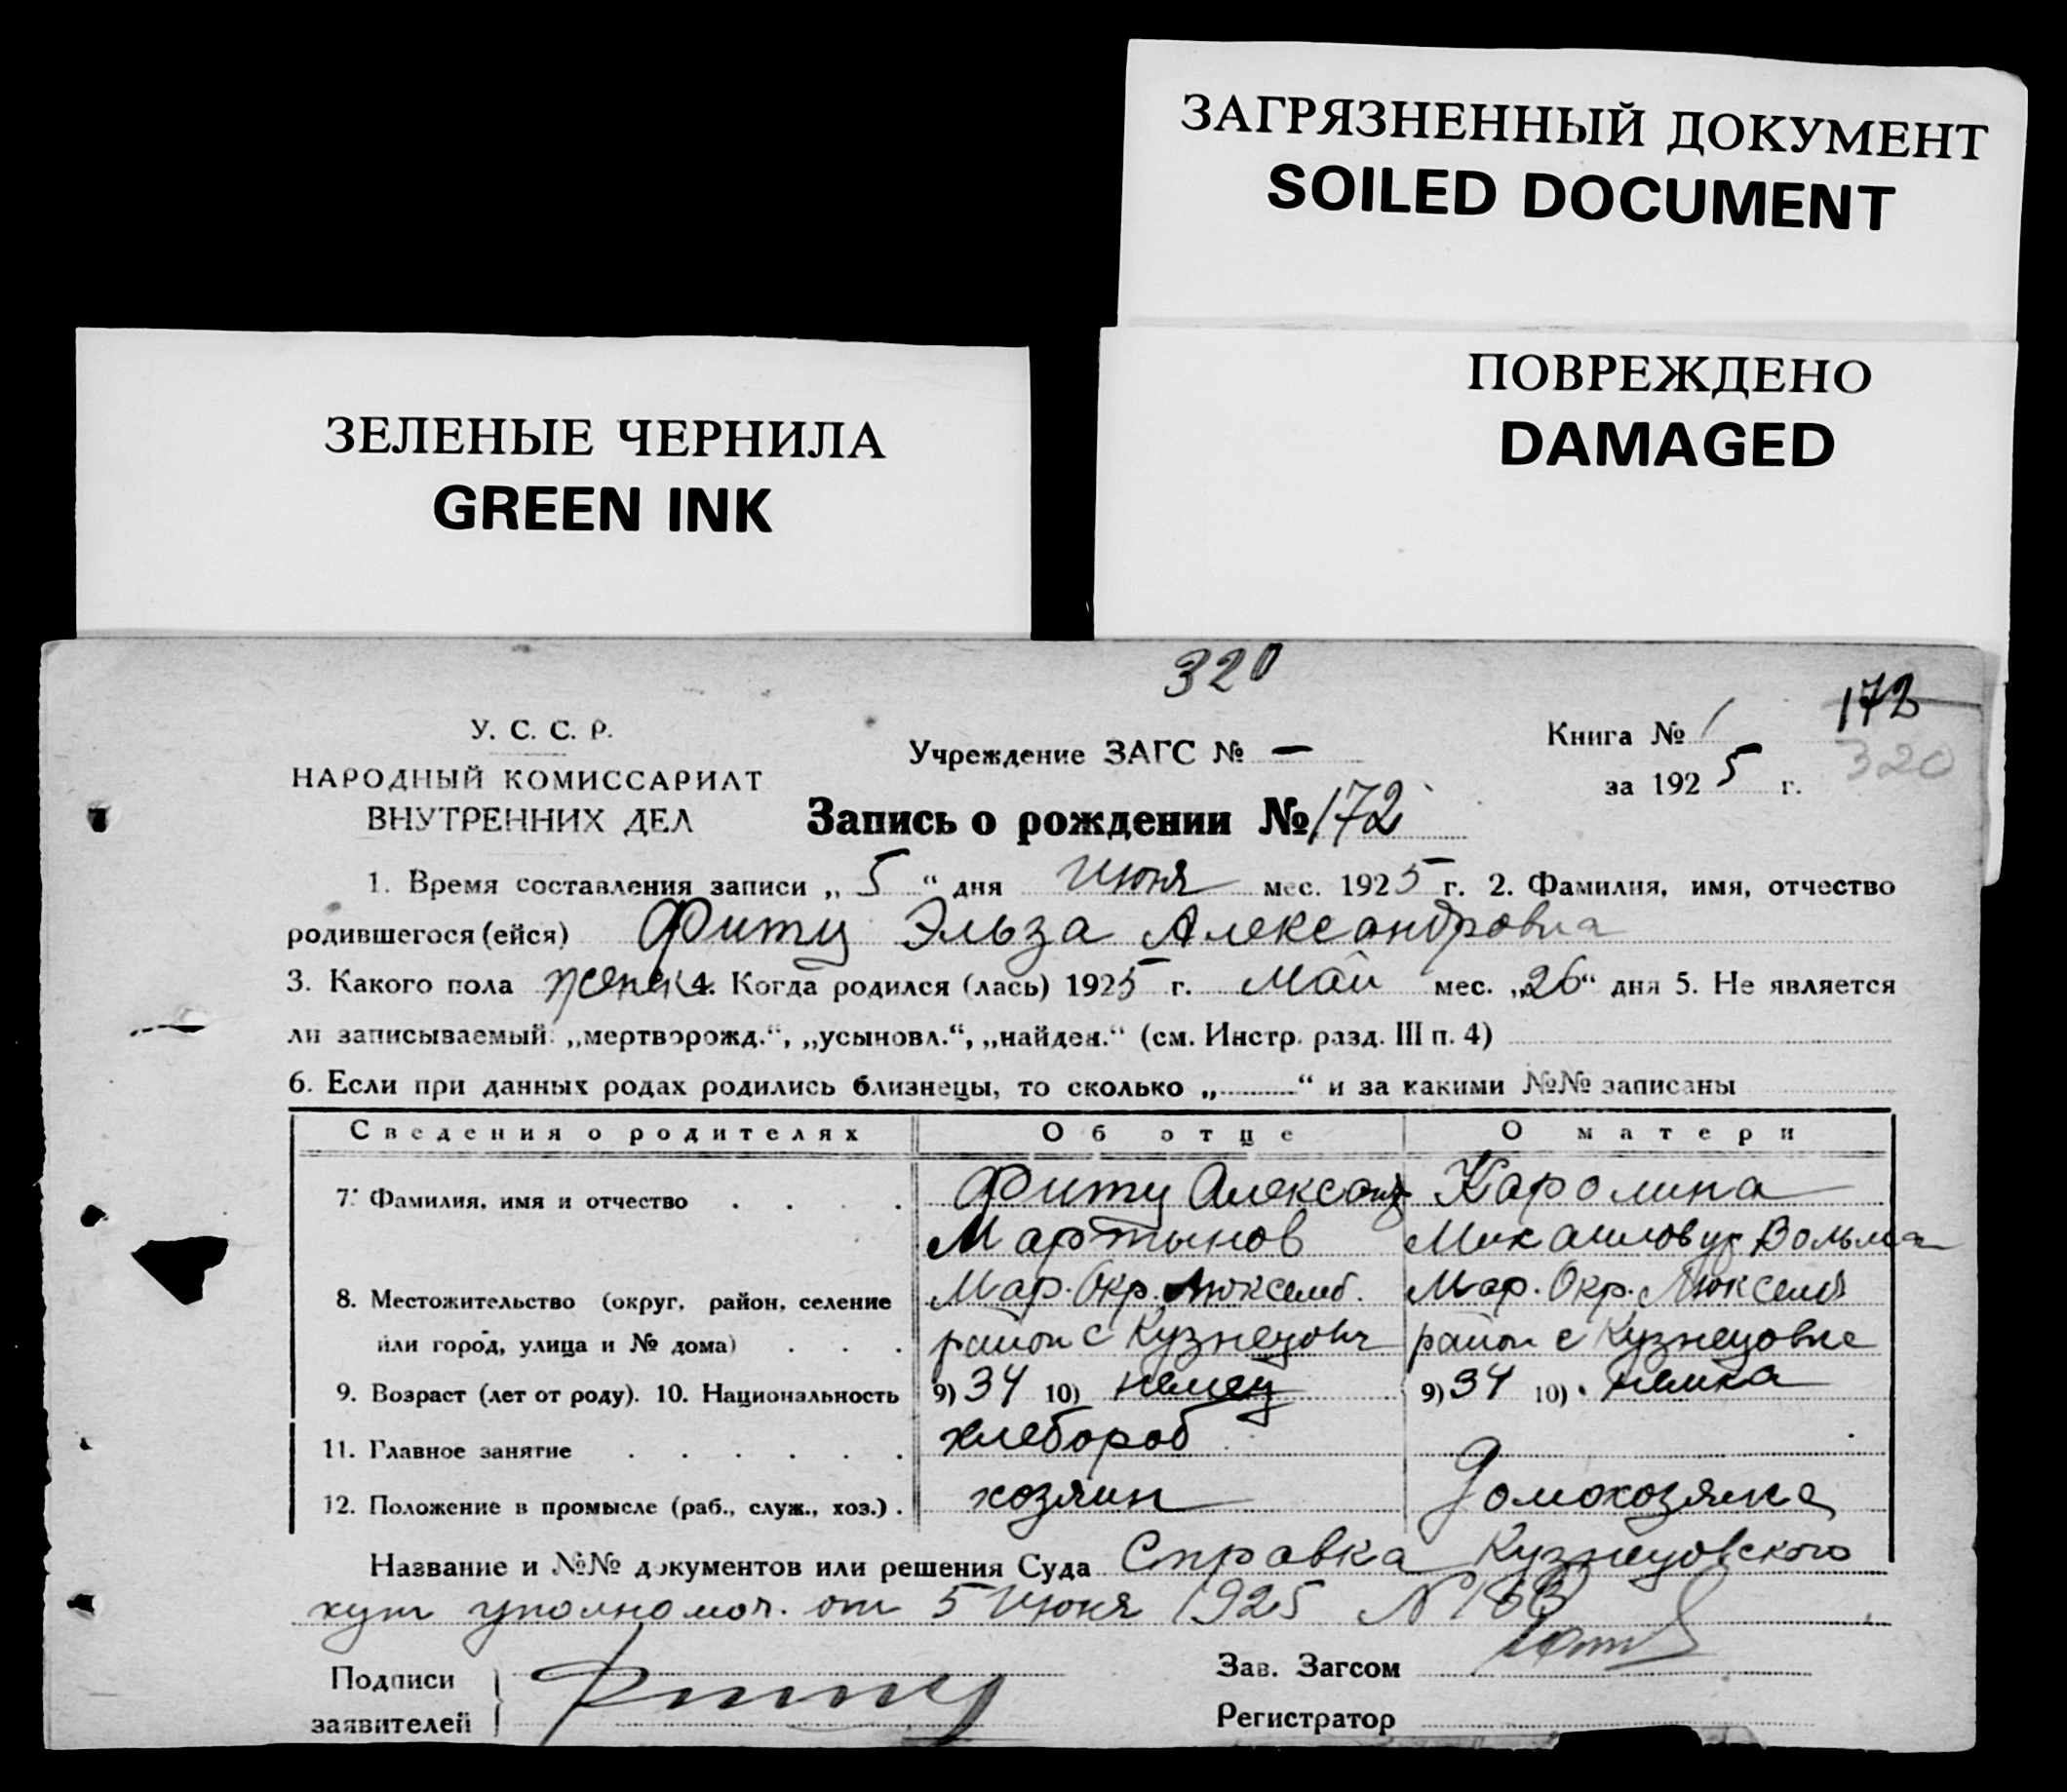 ЗАГРЯЗНЕННЫЙ ДОКУМЕНТ
SOILED DOCUMENT
ПОВРЕЖДЕНО
DAMAGED
ЗЕЛЕНЫЕ ЧЕРНИЛА
GREEN INK
320
172
320
У. С. С. Р.
НАРОДНЫЙ КОМИССАРИАТ
ВНУТРЕННИХ ДЕЛ
Учреждение ЗАГС № —
Книга № 1
за 1925 г.
Запись о рождении № 172
1. Время составления записи „ 5 “ дня Июня мес. 1925 г. 2. Фамилия, имя, отчество
родившегося (ейся) Фитц Эльза Александровна
3. Какого пола женск 4. Когда родился (лась) 1925 г. Май мес. „26“ дня 5. Не является
ли записываемый: „мертворожд.“, „усыновл.“, „найден.“ (см. Инстр. разд. III п. 4)
6. Если при данных родах родились близнецы, то сколько „ “ и за какими №№ записаны
Сведения о родителях Об отце О матери
7. Фамилия, имя и отчество Фитц Александр Каролина
Мартынов
8. Местожительство (округ, район, селение Мар. Окр. Люксемб. Мар. Окр. Люксемб
или город, улица и № дома) район с Кузнецовк район с Кузнецовке
9. Возраст (лет от роду). 10. Национальность 9) 34 10) немец 9) 34 10) немка
11. Главное занятие хлебороб
12. Положение в промысле (раб., служ., хоз.) хозяин Домохозяйка
Название и №№ документов или решения Суда Справка Кузнецовского
хут уполномоч. от 5 Июня 1925 N
Подписи
заявителей
Фитц
Зав. Загсом
Регистратор